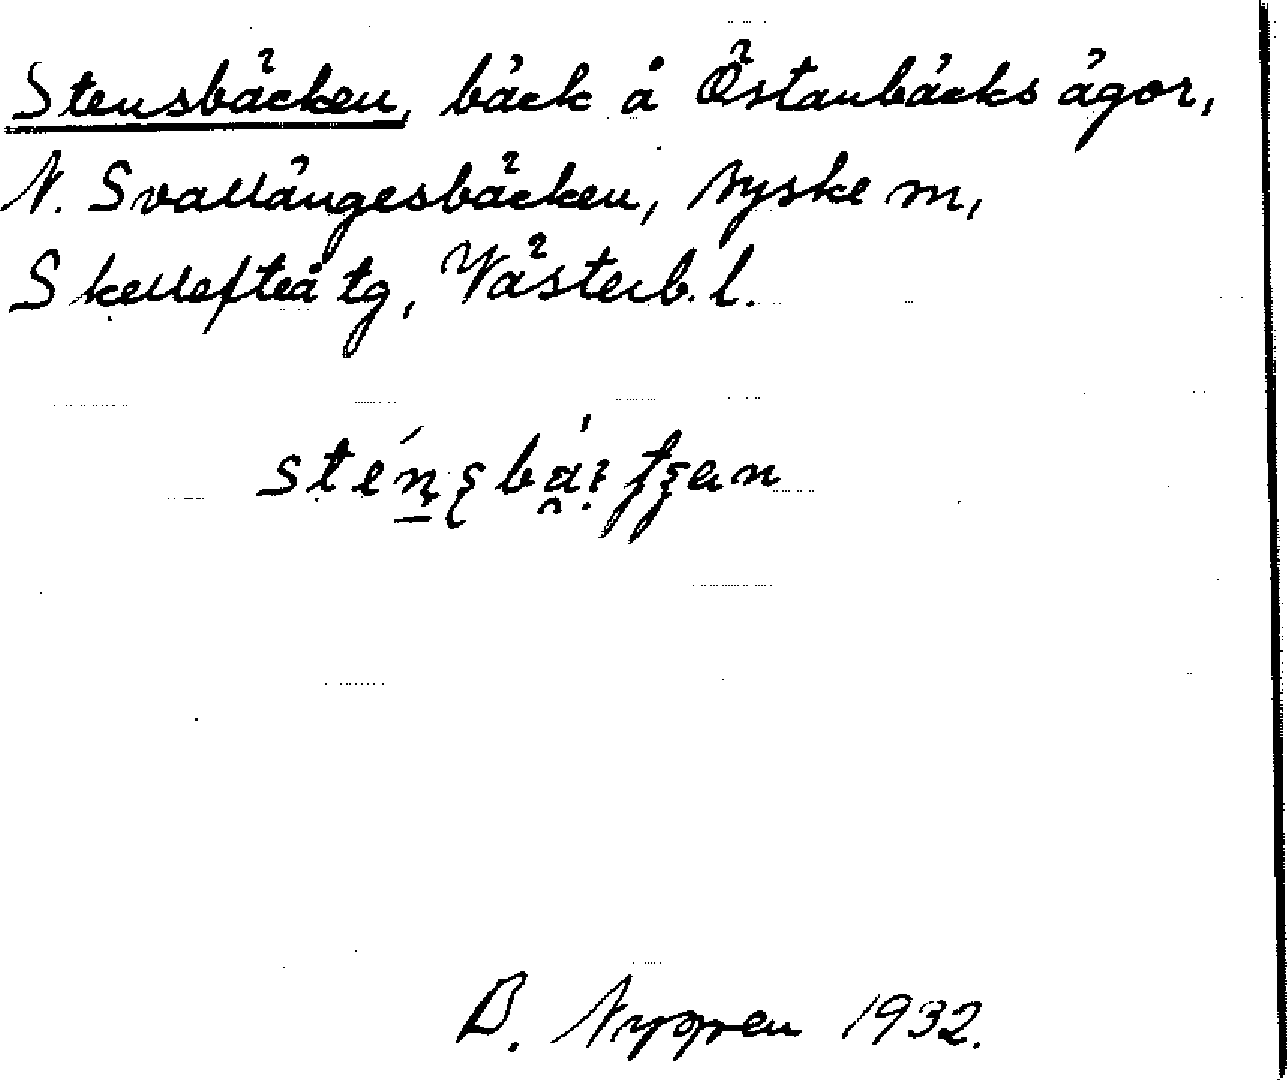 Stensbäcken, bäck å Östanbäcks ägor,
N. Svallängesbäcken, Byske sn,
Skellefteå tg, Västerb. l.
B. Nygren 1932.